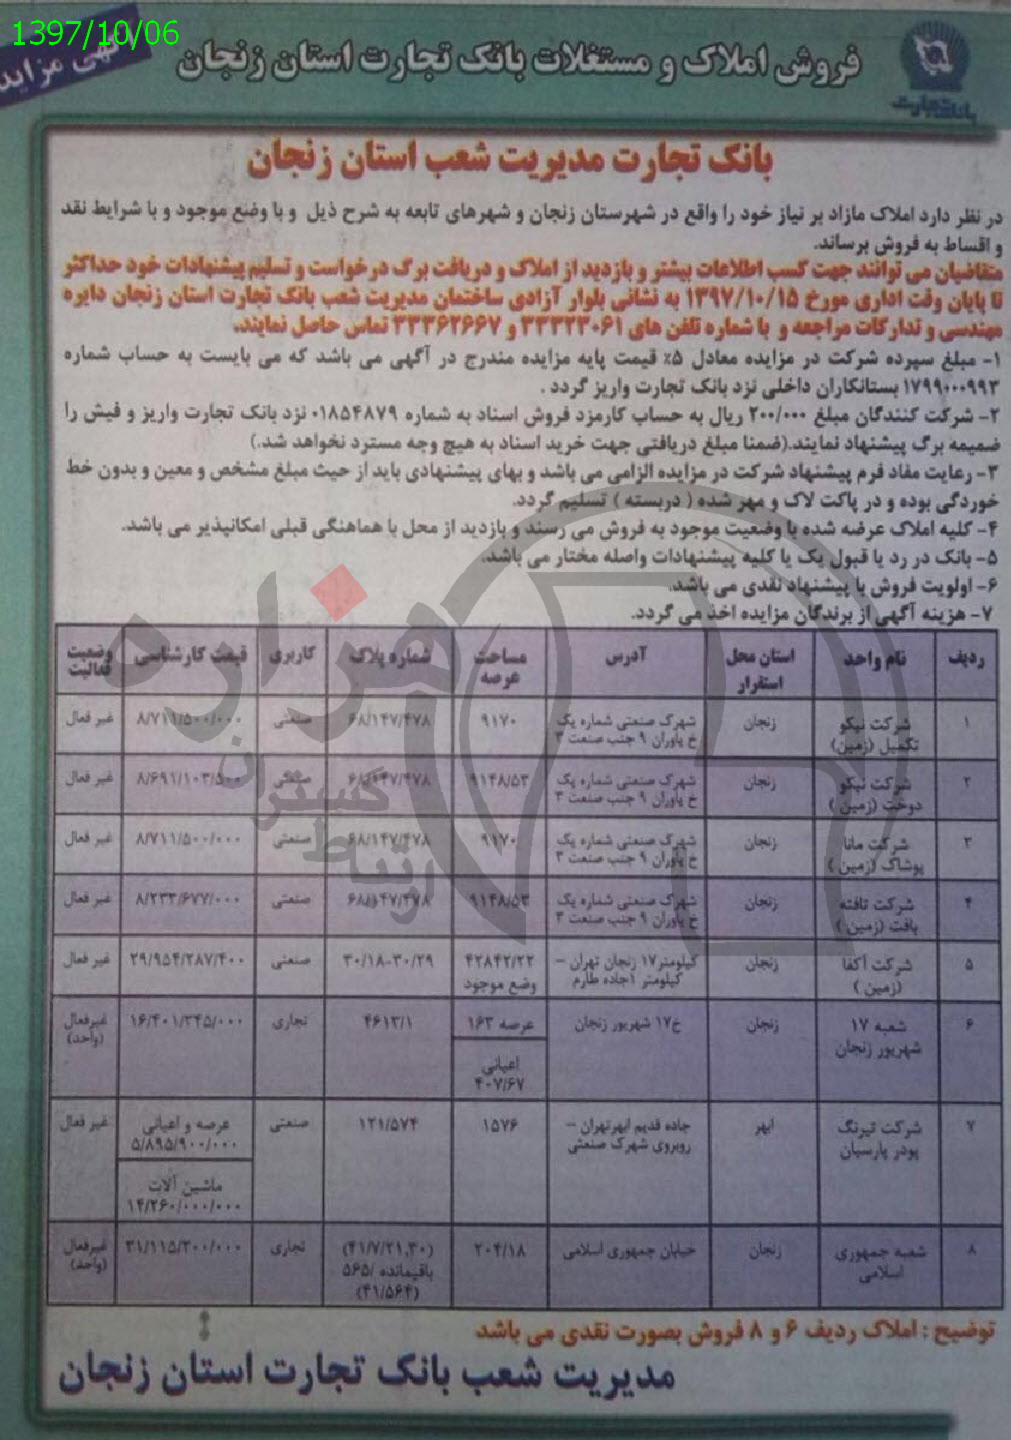 1397/10/06
آگهی مزایده
فروش املاک و مستغلات بانک تجارت استان زنجان
بانک تجارت
بانک تجارت مدیریت شعب استان زنجان
در نظر دارد املاک مازاد بر نیاز خود را واقع در شهرستان زنجان و شهرهای تابعه به شرح ذیل و با وضع موجود و با شرایط نقد
و اقساط به فروش برساند.
متقاضیان می توانند جهت کسب اطلاعات بیشتر و بازدید از املاک و دریافت برگ درخواست و تسلیم پیشنهادات خود حداکثر
تا پایان وقت اداری مورخ ۱۳۹۷/۱۰/۱۵ به نشانی بلوار آزادی ساختمان مدیریت شعب بانک تجارت استان زنجان دایره
مهندسی و تدارکات مراجعه و با شماره تلفن های ۳۳۳۲۳۰۶۱ و ۳۳۳۶۲۶۶۷ تماس حاصل نمایند.
۱- مبلغ سپرده شرکت در مزایده معادل ۵٪ قیمت پایه مزایده مندرج در آگهی می باشد که می بایست به حساب شماره
۱۷۹۹۰۰۰۹۹۳ بستانکاران داخلی نزد بانک تجارت واریز گردد .
۲- شرکت کنندگان مبلغ ۲۰۰/۰۰۰ ریال به حساب کارمزد فروش اسناد به شماره ۰۱۸۵۴۸۷۹ نزد بانک تجارت واریز و فیش را
ضمیمه برگ پیشنهاد نمایند.(ضمنا مبلغ دریافتی جهت خرید اسناد به هیچ وجه مسترد نخواهد شد.)
۳- رعایت مفاد فرم پیشنهاد شرکت در مزایده الزامی می باشد و بهای پیشنهادی باید از حیث مبلغ مشخص و معین و بدون خط
خوردگی بوده و در پاکت لاک و مهر شده ( دربسته ) تسلیم گردد.
۴- کلیه املاک عرضه شده با وضعیت موجود به فروش می رسند و بازدید از محل با هماهنگی قبلی امکانپذیر می باشد.
۵- بانک در رد یا قبول یک یا کلیه پیشنهادات واصله مختار می باشد.
۶- اولویت فروش با پیشنهاد نقدی می باشد.
۷- هزینه آگهی از برندگان مزایده اخذ می گردد.
ردیف نام واحد استان محل استقرار آدرس مساحت عرصه شماره پلاک کاربری قیمت کارشناسی وضعیت فعالیت
۱ شرکت نیکو تکمیل (زمین) زنجان شهرک صنعتی شماره یک خ یاوران ۹ جنب صنعت ۳ ۹۱۷۰ ۶۸/۱۴۷/۴۷۸ صنعتی ۸/۷۱۱/۵۰۰/۰۰۰ غیر فعال
۲ شرکت نیکو دوخت (زمین ) زنجان شهرک صنعتی شماره یک خ یاوران ۹ جنب صنعت ۳ ۹۱۴۸/۵۳ ۶۸/۱۴۷/۴۷۸ صنعتی ۸/۶۹۱/۱۰۳/۵۰۰ غیر فعال
۳ شرکت مانا پوشاک (زمین ) زنجان شهرک صنعتی شماره یک خ یاوران ۹ جنب صنعت ۳ ۹۱۷۰ ۶۸/۱۴۷/۴۷۸ صنعتی ۸/۷۱۱/۵۰۰/۰۰۰ غیر فعال
۴ شرکت تافته بافت (زمین ) زنجان شهرک صنعتی شماره یک خ یاوران ۹ جنب صنعت ۳ ۹۱۴۸/۵۳ ۶۸/۱۴۷/۴۷۸ صنعتی ۸/۲۳۳/۶۷۷/۰۰۰ غیر فعال
۵ شرکت آکفا (زمین ) زنجان کیلومتر۱۷ زنجان تهران – کیلومتر ۱جاده طارم ۴۲۸۴۲/۲۲ وضع موجود ۳۰/۱۸-۳۰/۲۹ صنعتی ۲۹/۹۵۴/۲۸۷/۴۰۰ غیر فعال
۶ شعبه ۱۷ شهریور زنجان زنجان خ۱۷ شهریور زنجان عرصه ۱۶۳ اعیانی ۴۰۷/۶۷ ۴۶۱۳/۱ تجاری ۱۶/۴۰۱/۳۴۵/۰۰۰ غیرفعال (واحد)
۷ شرکت نیرنگ پودر پارسیان ابهر جاده قدیم ابهرتهران – روبروی شهرک صنعتی ۱۵۷۶ ۱۲۱/۵۷۴ صنعتی عرصه و اعیانی ۵/۸۹۵/۹۰۰/۰۰۰ ماشین آلات ۱۴/۲۶۰/۰۰۰/۰۰۰ غیر فعال
۸ شعبه جمهوری اسلامی زنجان خیابان جمهوری اسلامی ۲۰۴/۱۸ (۴۱/۷/۲۱,۳۰) باقیمانده /۵۶۵ (۴۱/۵۶۴) تجاری ۳۱/۱۱۵/۲۰۰/۰۰۰ غیرفعال (واحد)
توضیح : املاک ردیف ۶ و ۸ فروش بصورت نقدی می باشد
مدیریت شعب بانک تجارت استان زنجان
هزاره
ارتباط گستران